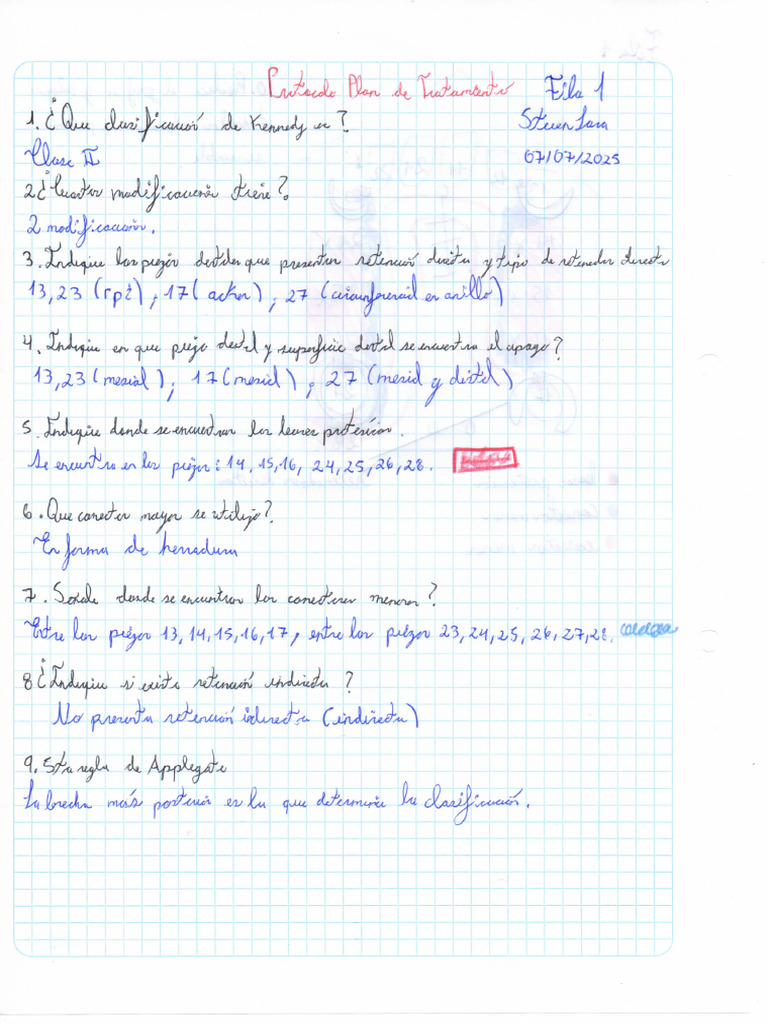 Protocolo Plan de Tratamiento Fila 1
1. ¿Que clasificación de Kennedy es?
Steven Lara
Clase II
07/07/2025
2 ¿Cuantas modificación tiene?
2 modificación.
3. Indique las piezas dentales que presentan retención directa y tipo de retenedor directo
13, 23 (rpi), 17 (acker), 27 (circunferencial en anillo)
4. Indique en que pieza dental y superficie dental se encuentra el apoyo?
13, 23 (mesial), 17 (mesial), 27 (mesial y distal)
5. Indique donde se encuentran las bases protesicas.
Se encuentra en las piezas: 14, 15, 16, 24, 25, 26, 28.
6. Que conector mayor se utilizo?
En forma de herradura
7. Señale donde se encuentran los conectores menores?
Entre las piezas 13, 14, 15, 16, 17, entre las piezas 23, 24, 25, 26, 27, 28.
8 ¿Indique si existe retención indirecta?
No presenta retención (indirecta)
9. 5ta regla de Applegate
La brecha más posterior es la que determina la clasificación.